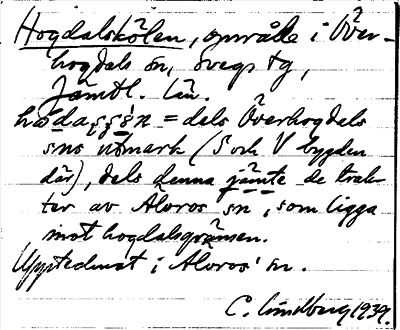 Hogdalskölen, område i Över-
hogdals sn, Svegs tg,
Jämtl. län.
= dels Överhogdals
sns utmark (S och V bygden
där), dels denna jämte de trak-
ter av Älvros sn, som ligga
mot hogdalsgränsen.
i Älvros sn.
C. Lindberg 1939.